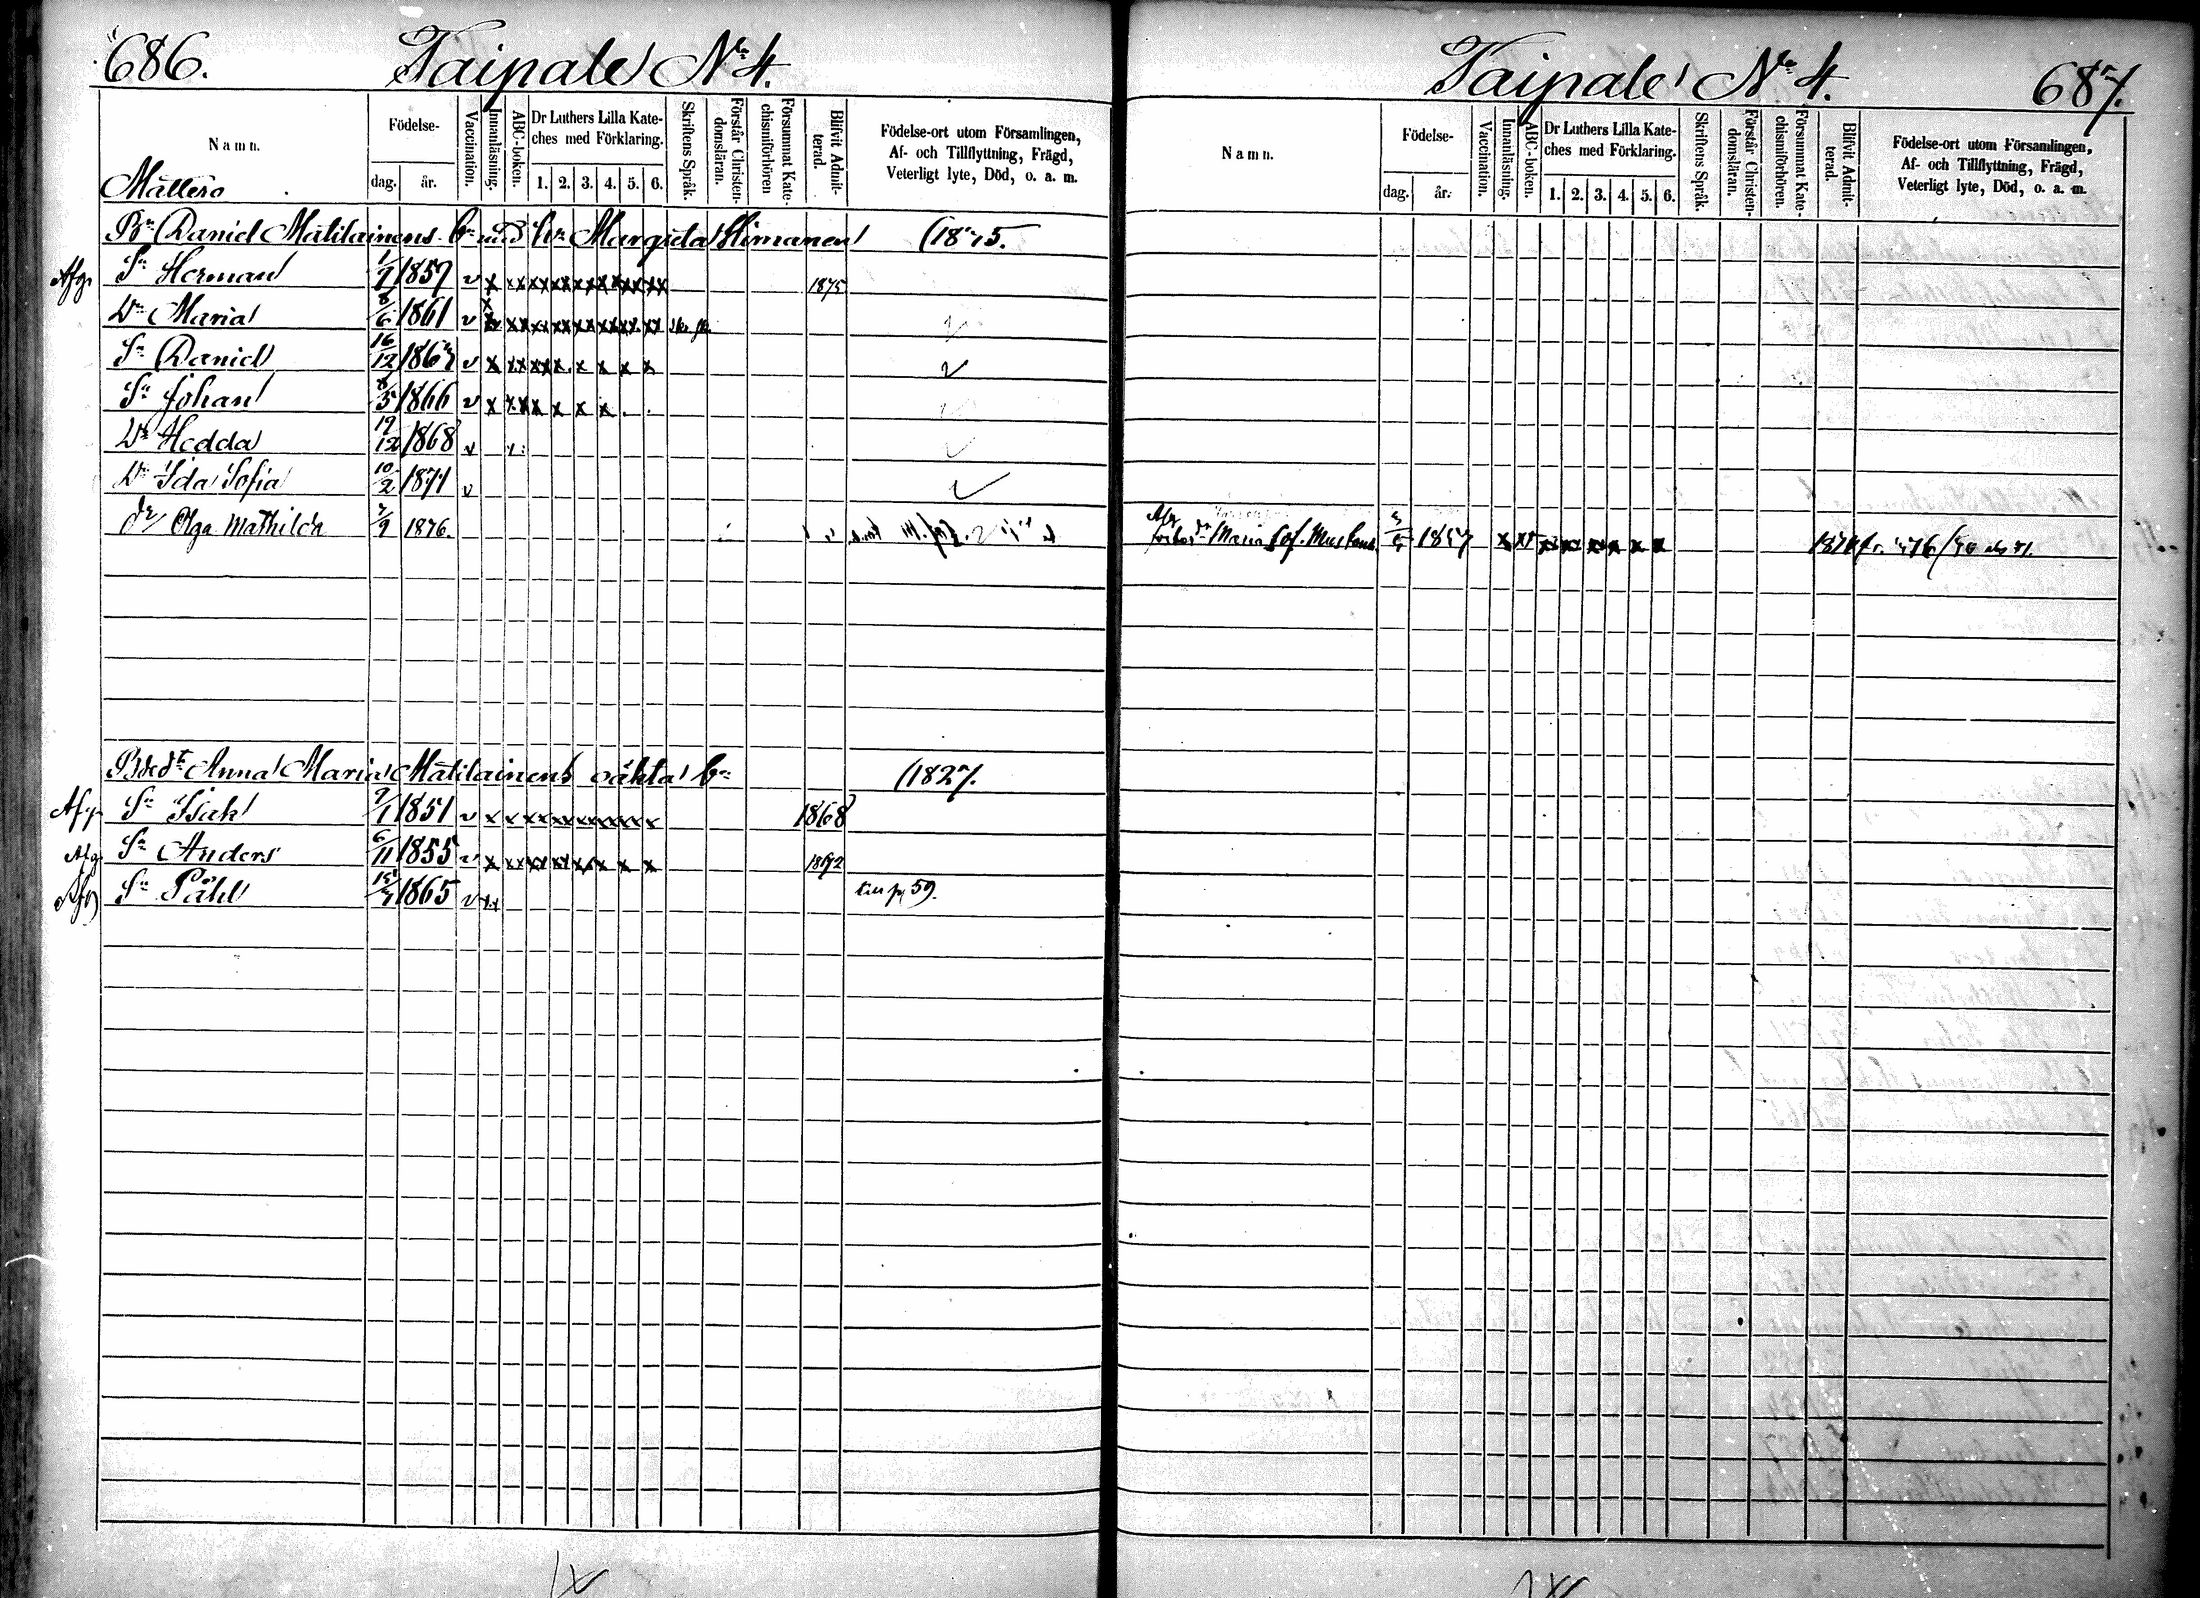 686. Taipale N:o 4.
Namn.
Födelse-
dag. år.
Vaccination.
Innanläsning.
ABC-boken.
Dr Luthers Lilla Kate-
ches med Förklaring.
1. 2. 3. 4. 5. 6.
Skriftens Språk.
Förstår Christen-
domsläran.
Försummat Kate-
chismiförhören
Blifvit Admit-
terad.
Födelse-ort utom Församlingen,
Af- och Tillflyttning, Frägd,
Veterligt lyte, Död, o. a. m.
Mattero
Bn Daniel Matilainens bn med hu Margeta Himanen (1875.
Afg. Sn Herman 1/7 1857 v x xx xx xx xx xx xx xx 1875
Dr Maria 8/6 1861 v x xx xx xx xx xx xx xx
Sn Daniel 16/12 1863 v x xx xx x x x x x v
Sn Johan 8/5 1866 v x xx x x x x
Dr Hedda 19/12 1868 v x
Dr Ida Sofia 10/2 1871 v
dr Olga Mathilda 7/9 1876.
Bdedt Anna Maria Matilainens oäkta bn (1827.
Afg. Sn Isak 9/1 1851 v x x x x x x x x x x 1868
Afg. Sn Anders 6/11 1855 v x xx xx xx xx x x x 1872
Afg Sn Påhl 15/7 1865 v xx till p 59.
Taipale N:o 4. 687.
Namn.
Födelse-
dag. år.
Vaccination.
Innanläsning.
ABC-boken.
Dr Luthers Lilla Kate-
ches med Förklaring.
1. 2. 3. 4. 5. 6.
Skriftens Språk.
Förstår Christen-
domsläran.
Försummat Kate-
chismiförhören.
Blifvit Admit-
terad.
Födelse-ort utom Församlingen,
Af- och Tillflyttning, Frägd,
Veterligt lyte, Död, o. a. m.
Afg
Maria Sof. 1857 x xx xx xx xx x x x